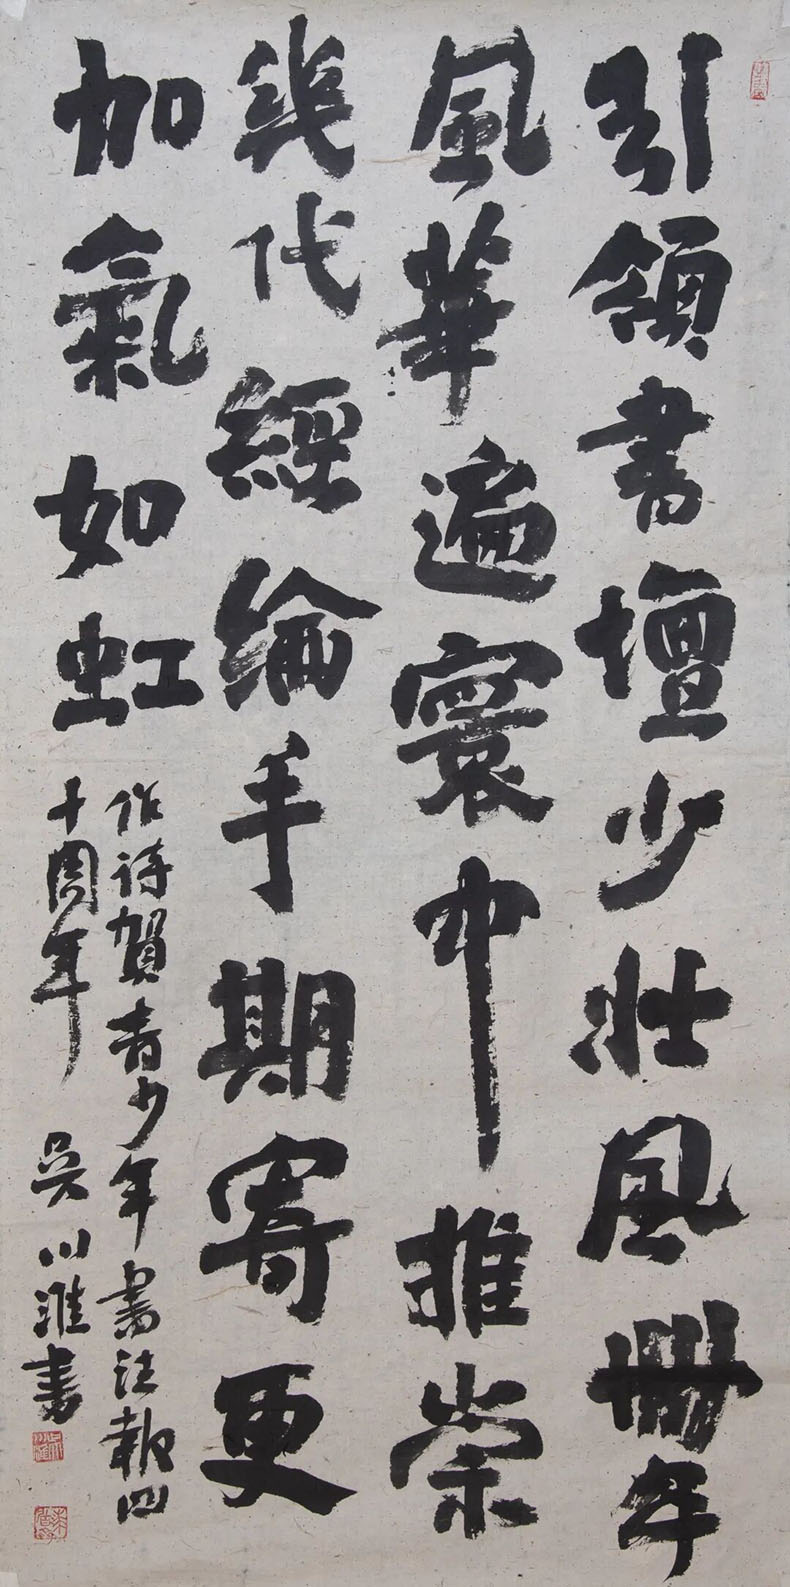 引領書壇少壯風卌年
風華遍寰中推崇
幾代經綸手期寄更
加氣如虹
作詩賀青少年書法報四
十周年 吳川淮書